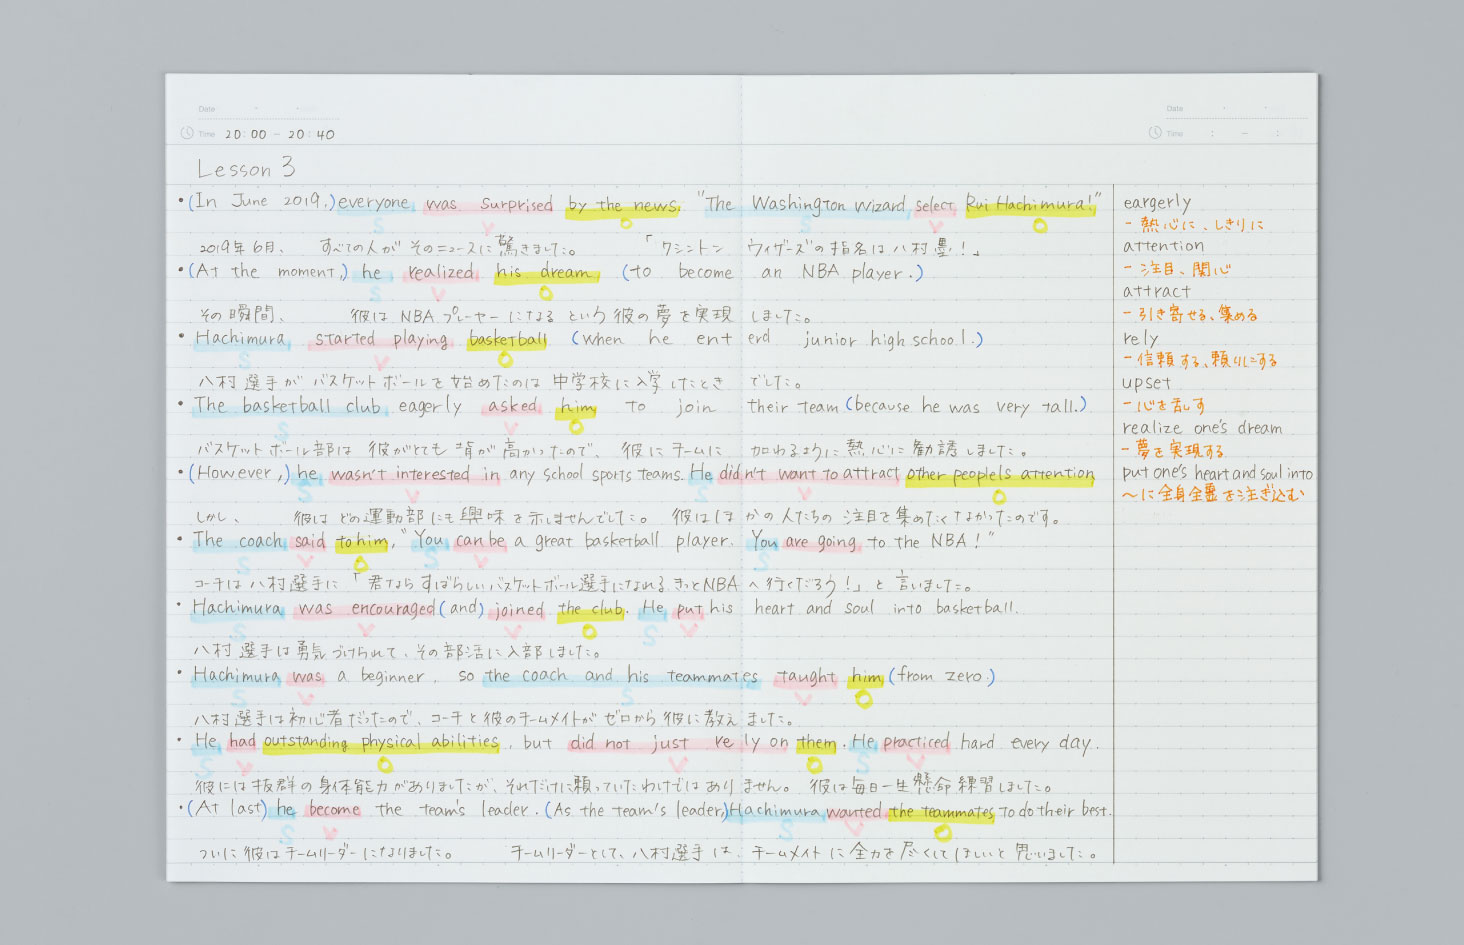 Date
Time 20:00 - 20:40
Date
Time : - :
Lesson 3
・(In June 2019,) everyone was surprised by the news. "The Washington Wizard select Rui Hachimura!"
S V O S V O
2019年6月、 すべての人が そのニュースに驚きました。 「ワシントン ウィザーズの指名は八村塁！」
・(At the moment,) he realized his dream (to become an NBA player.)
S V O
その瞬間、 彼は NBA プレーヤーになる という 彼の夢を実現しました。
・Hachimura started playing basketball (when he enterd junior high school.)
S V O
八村選手が バスケットボールを始めたのは 中学校に入学したとき でした。
・The basketball club eagerly asked him to join their team (because he was very tall.)
S V O
バスケットボール部は 彼がとても 背が高かったので、 彼にチームに 加わるように熱心に勧誘しました。
・(However,) he wasn't interested in any school sports teams. He didn't want to attract other people's attention
S V S V O
しかし、 彼は どの運動部にも興味を示しませんでした。 彼はほかの人たちの 注目を集めたくなかったのです。
・The coach said to him, "You can be a great basketball player. You are going to the NBA!"
S V O S V S
コーチは八村選手に 「君なら すばらしいバスケットボール選手になれる。きっとNBAへ行くだろう！」と 言いました。
・Hachimura was encouraged (and) joined the club. He put his heart and soul into basketball.
S V V O S V
八村選手は勇気づけられて、その部活に入部しました。
・Hachimura was a beginner, so the coach and his teammates taught him (from zero.)
S V S V O
八村選手は初心者だったので、コーチと彼のチームメイトが ゼロから彼に教えました。
・He had outstanding physical abilities, but did not just rely on them. He practiced hard every day.
S V O V O S V
彼には抜群の身体能力がありましたが、それだけに頼っていたわけではありません。 彼は毎日一生懸命練習しました。
・(At last) he become the team's leader. (As the team's leader,) Hachimura wanted the teammates to do their best.
S V S V O
ついに彼はチームリーダーになりました。 チームリーダーとして、八村選手は、チームメイトに全力を尽くしてほしいと思いました。
eargerly
-熱心に、しきりに
attention
-注目、関心
attract
-引き寄せる、集める
rely
-信頼する、頼りにする
upset
-心を乱す
realize one's dream
-夢を実現する
put one's heart and soul into
~に全身全霊を注ぎ込む